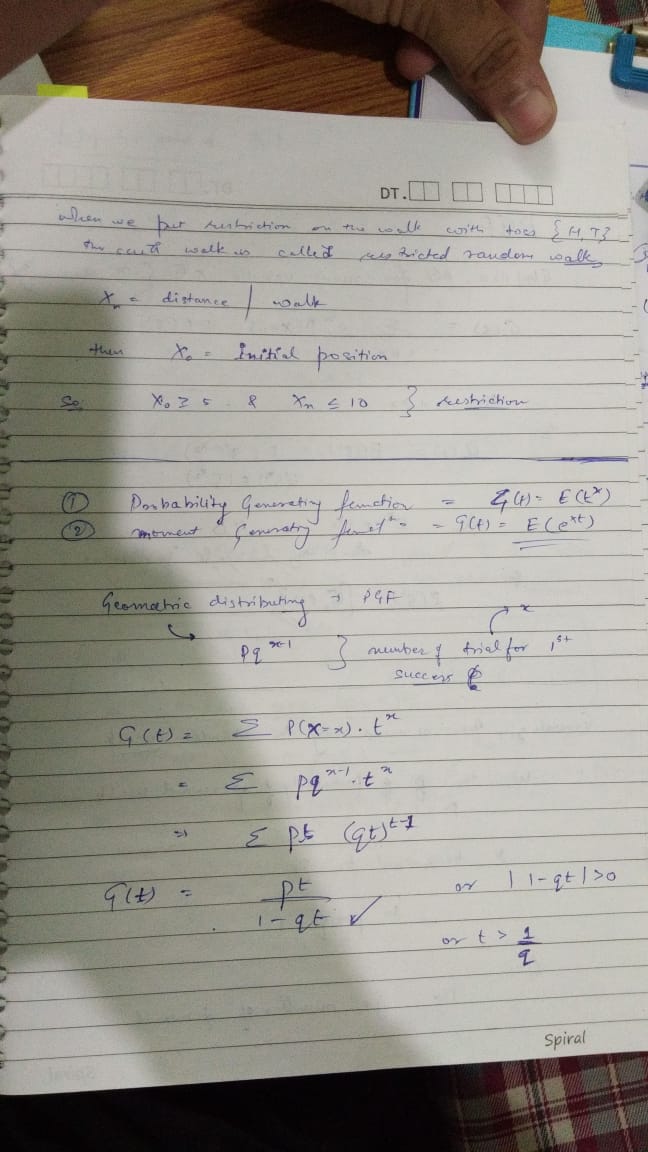 DT.
when we put restriction on the walk with toss {H,T}
the walk is called restricted random walk
Xn = distance / walk
then X₀ = Initial position
So X₀ ≥ 5 & Xn ≤ 10 } restriction
① Probability Generating function = G(t) = E(t^x)
② moment Generating funct = G(t) = E(e^xt)
Geometric distributing → PGF
x
pq^x-1 } number of trial for 1st
success
G(t) = Σ P(X=x) . t^x
= Σ pq^x-1 . t^x
⇒ Σ pt (qt)^t-1
G(t) = pt / 1-qt ✓ or |1-qt|>0
or t > 1/q
Spiral